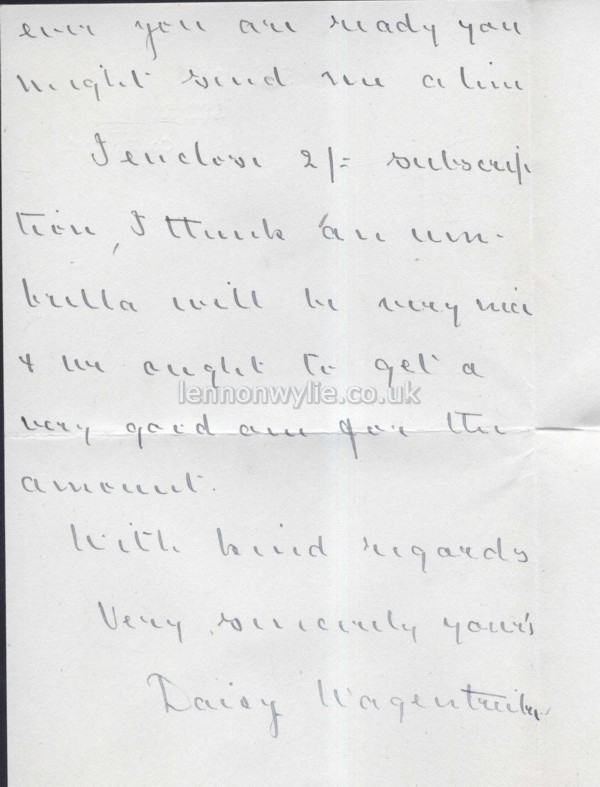 ever you are ready you
might send me a line
I enclose 2/= subscrip
tion, I think an um-
brella will be very nice
& we ought to get a
lennonwylie.co.uk
very good one for the
amount.
With kind regards
Very sincerely your's
Daisy